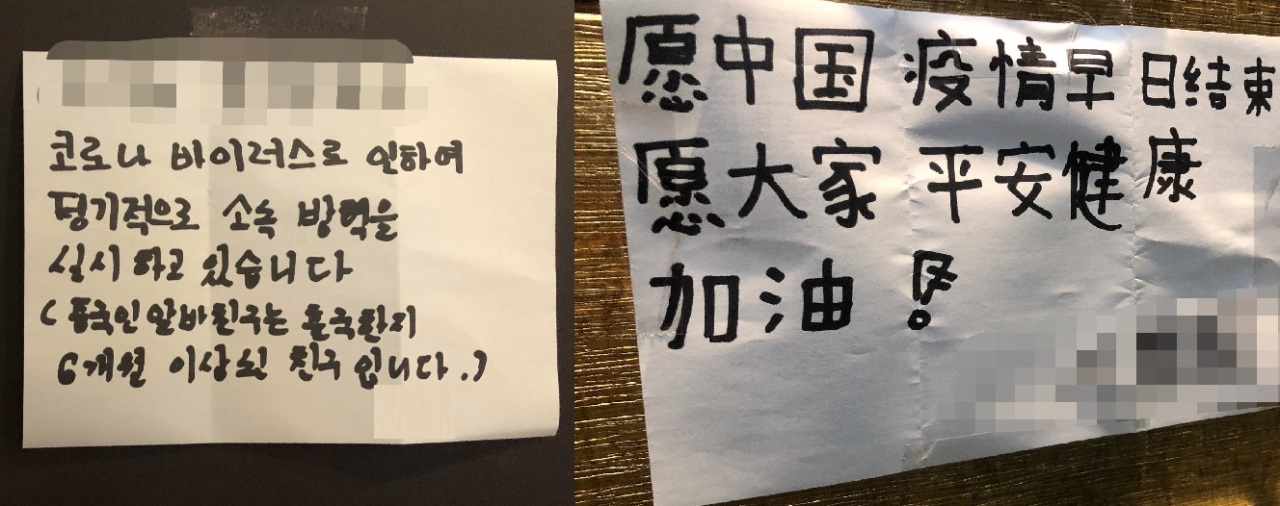 코로나 바이러스로 인하여
정기적으로 소독 방역을
실시 하고 있습니다
( 중국인 알바친구는 출국한지
6개월 이상된 친구 입니다.)
愿中国 疫情早日结束
愿大家 平安健康
加油！